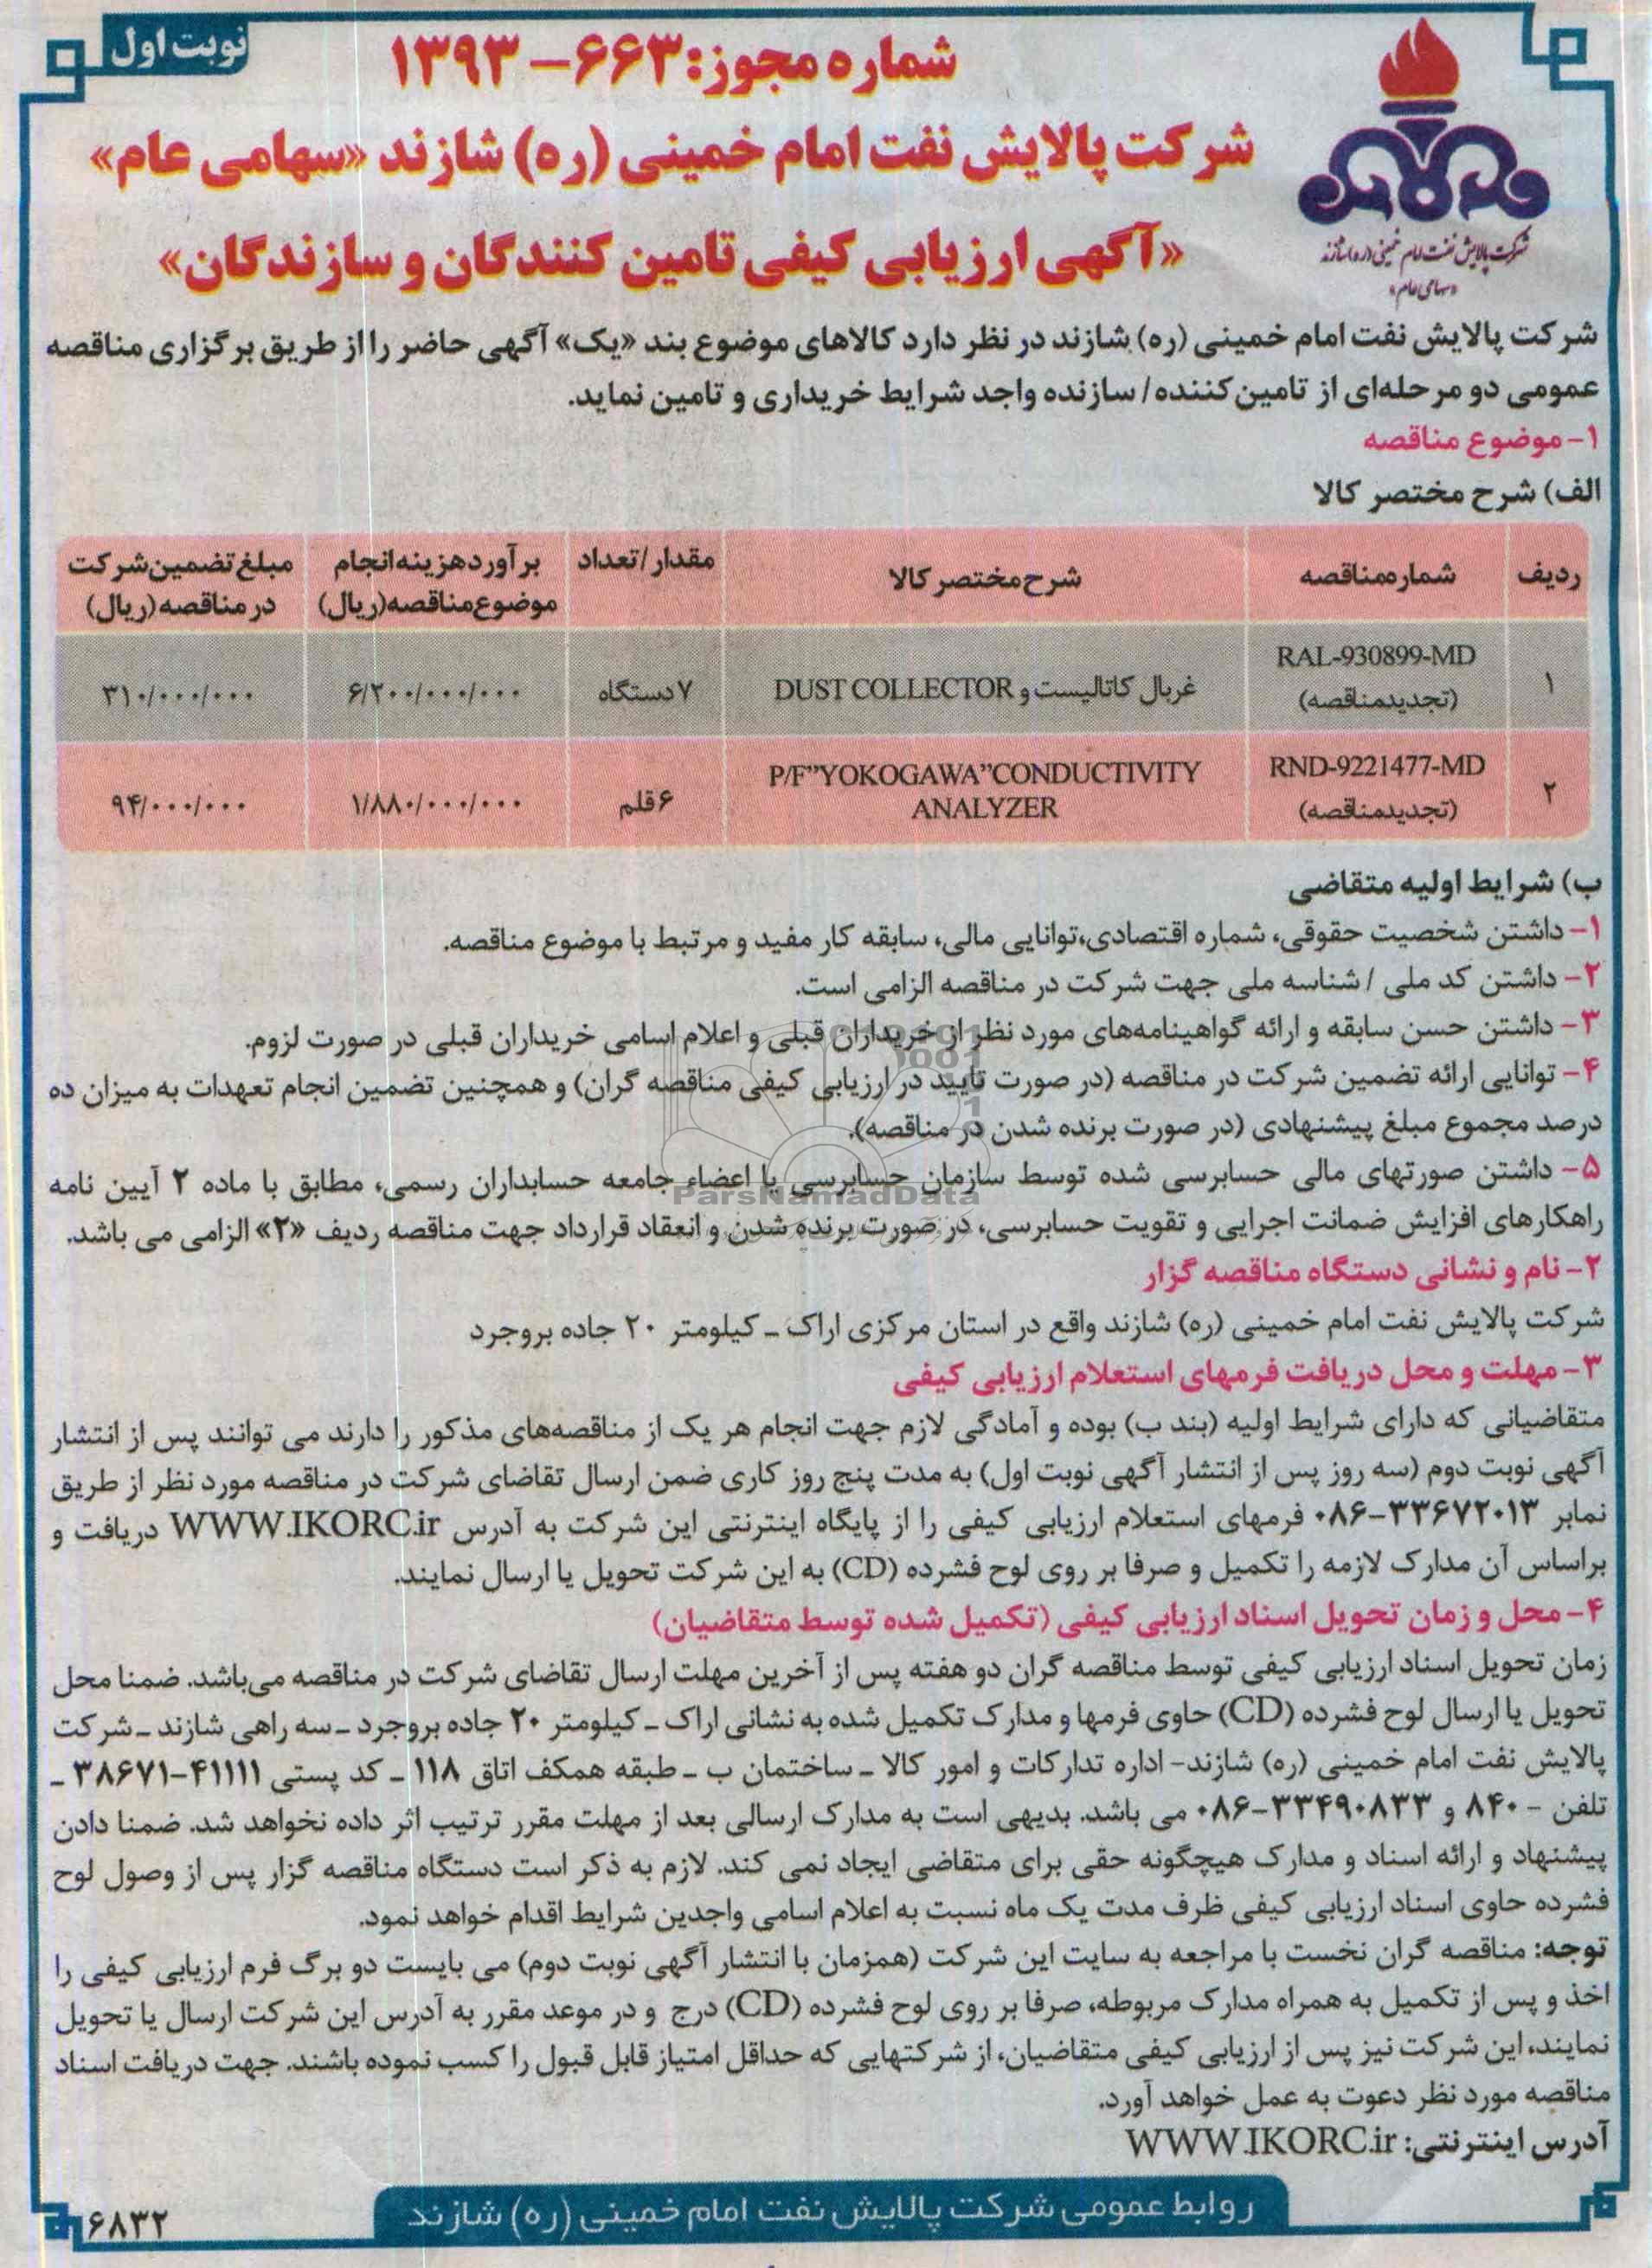 نوبت اول
شماره مجوز: ۶۶۳– ۱۳۹۳
شرکت پالایش نفت امام خمینی (ره) شازند «سهامی عام»
«آگهی ارزیابی کیفی تامین کنندگان و سازندگان»
شرکت پالایش نفت امام خمینی (ره) شازند
«سهامی عام»
شرکت پالایش نفت امام خمینی (ره) شازند در نظر دارد کالاهای موضوع بند «یک» آگهی حاضر را از طریق برگزاری مناقصه
عمومی دو مرحله‌ای از تامین‌کننده / سازنده واجد شرایط خریداری و تامین نماید.
۱- موضوع مناقصه
الف) شرح مختصر کالا
ردیف | شماره‌مناقصه | شرح‌مختصر کالا | مقدار/تعداد | برآورد هزینه انجام موضوع‌مناقصه (ریال) | مبلغ تضمین‌شرکت در مناقصه (ریال)
۱ | RAL-930899-MD (تجدیدمناقصه) | غربال کاتالیست و DUST COLLECTOR | ۷ دستگاه | ۶/۲۰۰/۰۰۰/۰۰۰ | ۳۱۰/۰۰۰/۰۰۰
۲ | RND-9221477-MD (تجدیدمناقصه) | P/F"YOKOGAWA"CONDUCTIVITY ANALYZER | ۶ قلم | ۱/۸۸۰/۰۰۰/۰۰۰ | ۹۴/۰۰۰/۰۰۰
ب) شرایط اولیه متقاضی
۱- داشتن شخصیت حقوقی، شماره اقتصادی،توانایی مالی، سابقه کار مفید و مرتبط با موضوع مناقصه.
۲- داشتن کد ملی / شناسه ملی جهت شرکت در مناقصه الزامی است.
۳- داشتن حسن سابقه و ارائه گواهینامه‌های مورد نظر از خریداران قبلی و اعلام اسامی خریداران قبلی در صورت لزوم.
۴- توانایی ارائه تضمین شرکت در مناقصه (در صورت تایید در ارزیابی کیفی مناقصه گران) و همچنین تضمین انجام تعهدات به میزان ده
درصد مجموع مبلغ پیشنهادی (در صورت برنده شدن در مناقصه).
۵- داشتن صورتهای مالی حسابرسی شده توسط سازمان حسابرسی یا اعضاء جامعه حسابداران رسمی، مطابق با ماده ۲ آیین نامه
راهکارهای افزایش ضمانت اجرایی و تقویت حسابرسی، در صورت برنده شدن و انعقاد قرارداد جهت مناقصه ردیف «۲» الزامی می باشد.
ParsNamadData
۲- نام و نشانی دستگاه مناقصه گزار
شرکت پالایش نفت امام خمینی (ره) شازند واقع در استان مرکزی اراک ـ کیلومتر ۲۰ جاده بروجرد
۳- مهلت و محل دریافت فرمهای استعلام ارزیابی کیفی
متقاضیانی که دارای شرایط اولیه (بند ب) بوده و آمادگی لازم جهت انجام هر یک از مناقصه‌های مذکور را دارند می توانند پس از انتشار
آگهی نوبت دوم (سه روز پس از انتشار آگهی نوبت اول) به مدت پنج روز کاری ضمن ارسال تقاضای شرکت در مناقصه مورد نظر از طریق
نمابر ۳۳۶۷۲۰۱۳-۰۸۶ فرمهای استعلام ارزیابی کیفی را از پایگاه اینترنتی این شرکت به آدرس WWW.IKORC.ir دریافت و
براساس آن مدارک لازمه را تکمیل و صرفا بر روی لوح فشرده (CD) به این شرکت تحویل یا ارسال نمایند.
۴- محل و زمان تحویل اسناد ارزیابی کیفی (تکمیل شده توسط متقاضیان)
زمان تحویل اسناد ارزیابی کیفی توسط مناقصه گران دو هفته پس از آخرین مهلت ارسال تقاضای شرکت در مناقصه می‌باشد. ضمنا محل
تحویل یا ارسال لوح فشرده (CD) حاوی فرمها و مدارک تکمیل شده به نشانی اراک ـ کیلومتر ۲۰ جاده بروجرد ـ سه راهی شازند ـ شرکت
پالایش نفت امام خمینی (ره) شازند- اداره تدارکات و امور کالا ـ ساختمان ب ـ طبقه همکف اتاق ۱۱۸ ـ کد پستی ۴۱۱۱۱-۳۸۶۷۱ ـ
تلفن - ۸۴۰ و ۳۳۴۹۰۸۳۳-۰۸۶ می باشد. بدیهی است به مدارک ارسالی بعد از مهلت مقرر ترتیب اثر داده نخواهد شد. ضمنا دادن
پیشنهاد و ارائه اسناد و مدارک هیچگونه حقی برای متقاضی ایجاد نمی کند. لازم به ذکر است دستگاه مناقصه گزار پس از وصول لوح
فشرده حاوی اسناد ارزیابی کیفی ظرف مدت یک ماه نسبت به اعلام اسامی واجدین شرایط اقدام خواهد نمود.
توجه: مناقصه گران نخست با مراجعه به سایت این شرکت (همزمان با انتشار آگهی نوبت دوم) می بایست دو برگ فرم ارزیابی کیفی را
اخذ و پس از تکمیل به همراه مدارک مربوطه، صرفا بر روی لوح فشرده (CD) درج و در موعد مقرر به آدرس این شرکت ارسال یا تحویل
نمایند، این شرکت نیز پس از ارزیابی کیفی متقاضیان، از شرکتهایی که حداقل امتیاز قابل قبول را کسب نموده باشند. جهت دریافت اسناد
مناقصه مورد نظر دعوت به عمل خواهد آورد.
آدرس اینترنتی: WWW.IKORC.ir
روابط عمومی شرکت پالایش نفت امام خمینی (ره) شازند
۶۸۳۲